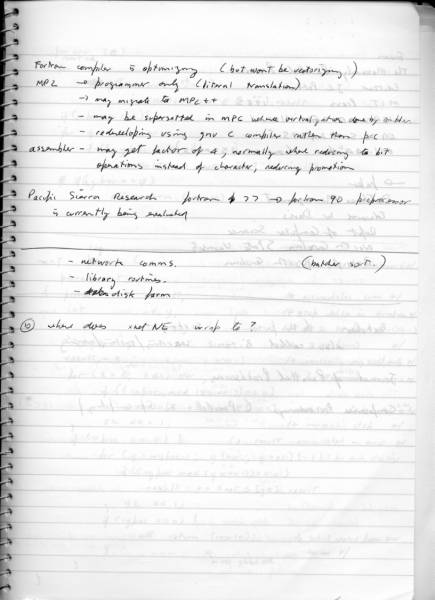 Fortran compiler is optimizing (but won't be vectorizing)
MPL → programmer only (literal translation)
→ may migrate to MPC++
- may be superseded in MPC where virtualization done by
- redeveloping using gnu C compiler rather than pcc
assembler - may get factor of 4, normally when reducing to bit
operations instead of character, reducing promotion
Pacific Sierra Research fortran 77 → fortran 90 preprocessor
is currently being evaluated
- network comms. (batcher sort..)
- library routines.
- disk farm
where does xnet NE wrap to?